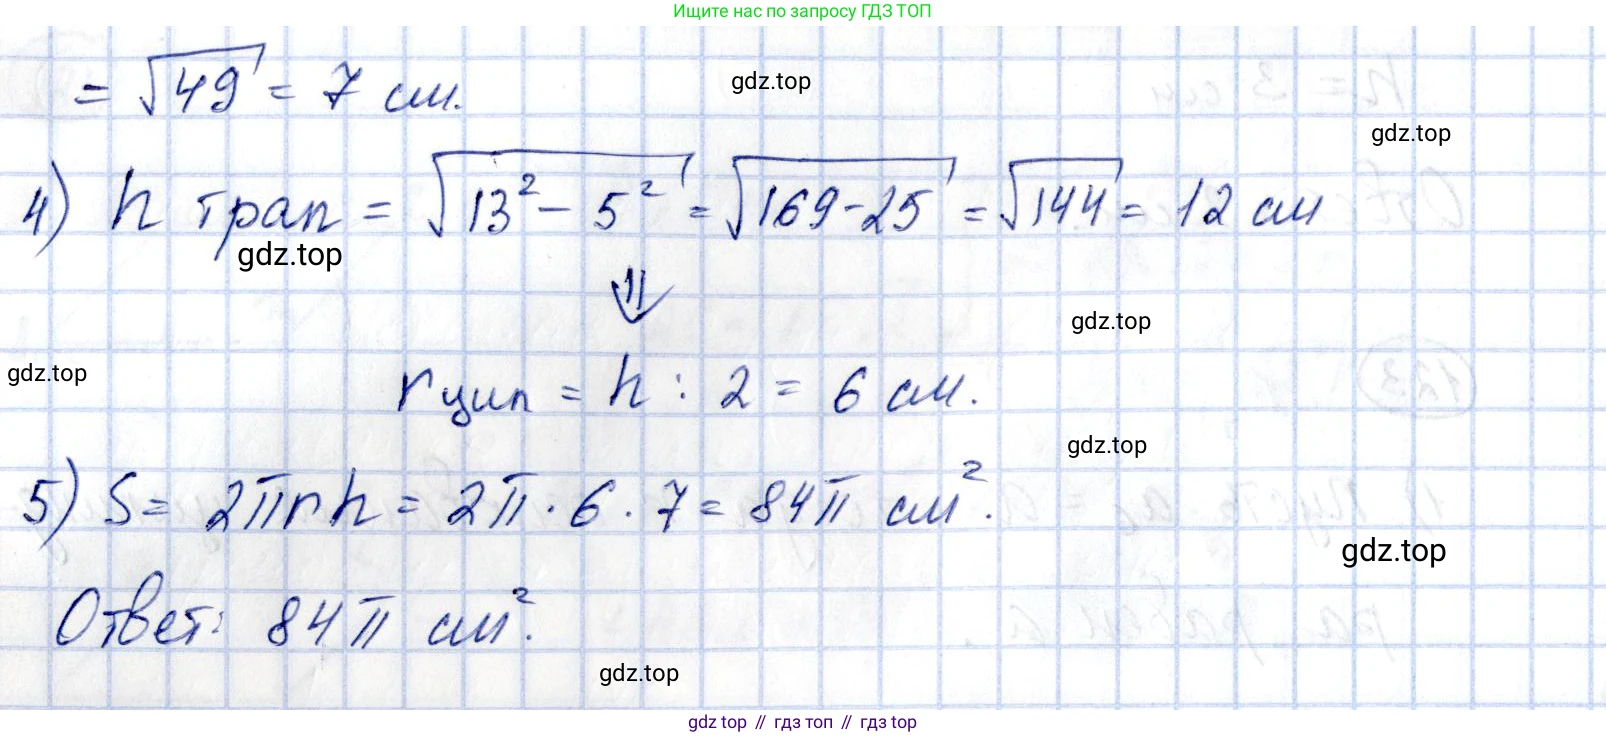 Ищите нас по запросу ГДЗ ТОП
= √49 = 7 см.
gdz.top
gdz.top
4) h трап = √13² - 5² = √169-25 = √144 = 12 см
gdz.top
⇓
gdz.top
gdz.top
r цил = h : 2 = 6 см.
gdz.top
5) S = 2πrh = 2π · 6 · 7 = 84π см².
gdz.top
Ответ: 84π см².
gdz.top
gdz top // гдз топ // гдз top